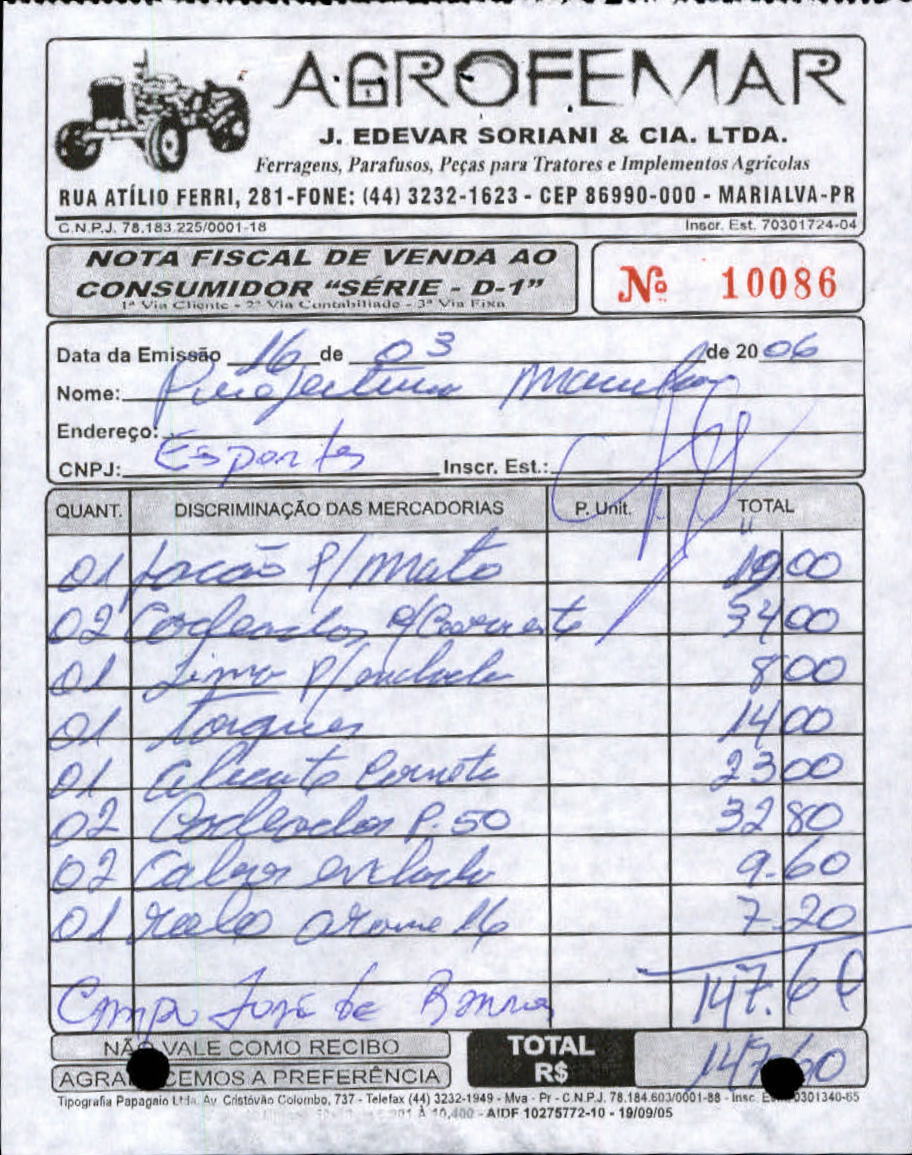 AGROFEMAR
J. EDEVAR SORIANI & CIA. LTDA.
Ferragens, Parafusos, Peças para Tratores e Implementos Agrícolas
RUA ATÍLIO FERRI, 281-FONE: (44) 3232-1623 - CEP 86990-000 - MARIALVA-PR
C.N.P.J. 78.183.225/0001-18 Inscr. Est. 70301724-04
NOTA FISCAL DE VENDA AO
CONSUMIDOR "SÉRIE - D-1"
1ª Via Cliente - 2ª Via Contabiliade - 3ª Via Fixa
Nº 10086
Data da Emissão 16 de 03 de 2006
Nome:
Endereço:
CNPJ: Esportes Inscr. Est.:
QUANT. DISCRIMINAÇÃO DAS MERCADORIAS P. Unit. TOTAL
01 facão P/ Mato 19,00
02 Cadeados 34 00
01 Lima P/ enchada 8 00
01 torques 14 00
01 alicate 23 00
02 Cadeados P. 50 32 80
02 Cabos enchada 9.60
01 rolo arame 16 7.20
147.60
José de
NÃO VALE COMO RECIBO
TOTAL R$ 147,60
CEMOS A PREFERÊNCIA
Tipografia Papagaio Ltda. Av. Cristóvão Colombo, 737 - Telefax (44) 3232-1949 - Mva - Pr - C.N.P.J. 78.184.603/0001-88 - Insc. 0301340-65
À 10,400 - AIDF 10275772-10 - 19/09/05